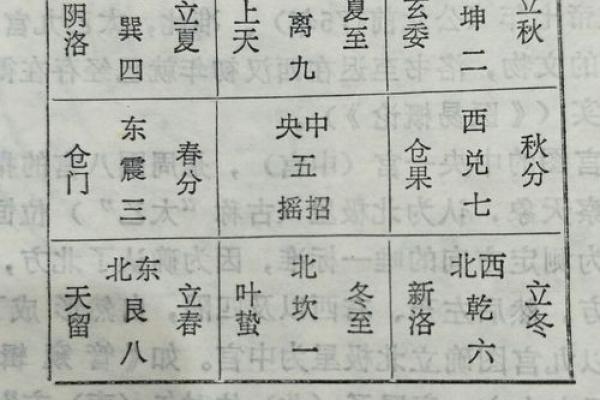 阴洛
巽四
立夏
上天
离九
夏至
玄委
坤二
立秋
仓门
东震三
春分
中央
五
招摇
仓果
西兑七
秋分
天留
东北
艮八
立春
叶蛰
北坎一
冬至
新洛
西北
乾六
立冬